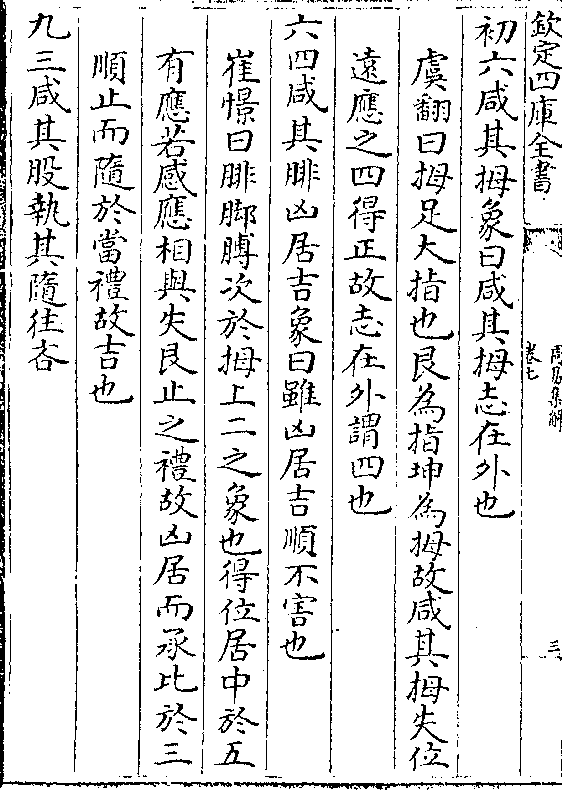 欽定四庫全書
周易集解
卷七
三
初六咸其拇象曰咸其拇志在外也
虞翻曰拇足大指也艮為指坤為拇故咸其拇失位
遠應之四得正故志在外謂四也
六四咸其腓凶居吉象曰雖凶居吉順不害也
崔憬曰腓腳膊次於拇上二之象也得位居中於五
有應若感應相與失艮止之禮故凶居而承比於三
順止而隨於當禮故吉也
九三咸其股執其隨往吝